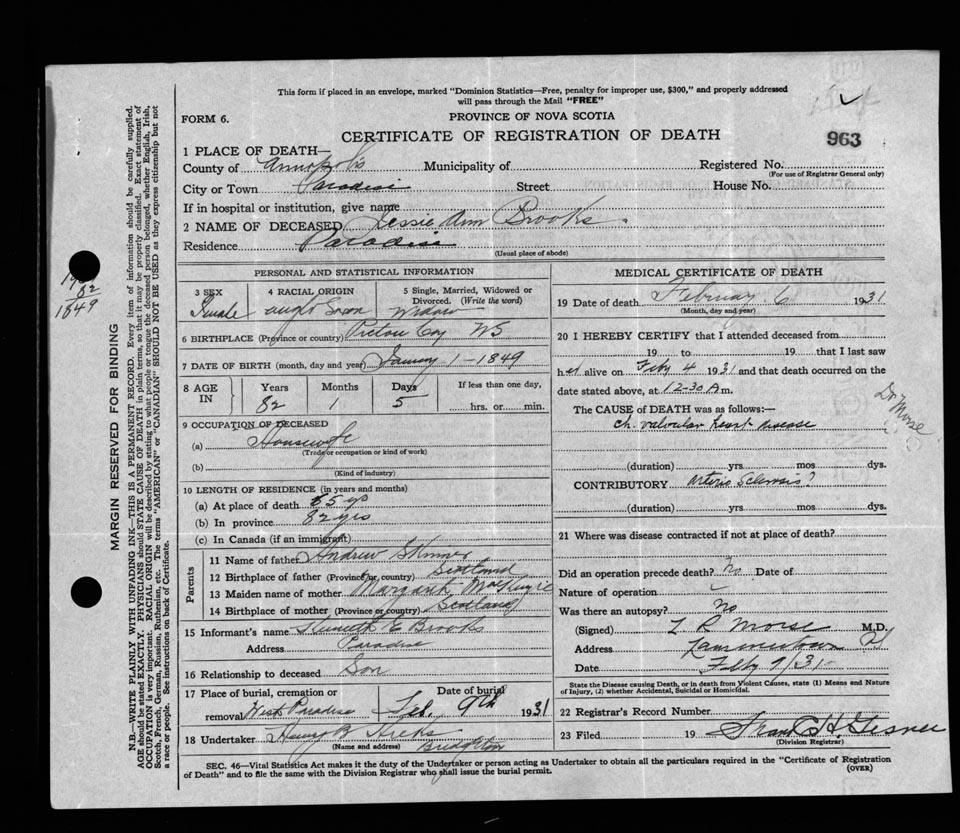 This form if placed in an envelope, marked "Dominion Statistics—Free, penalty for improper use, $300," and properly addressed
will pass through the Mail "FREE"
FORM 6.
PROVINCE OF NOVA SCOTIA
CERTIFICATE OF REGISTRATION OF DEATH
963
1 PLACE OF DEATH—
County of Annapolis Municipality of Registered No.
(For use of Registrar General only)
City or Town Paradise Street House No.
If in hospital or institution, give name
2 NAME OF DECEASED Jessie Ann Brooks
Residence Paradise
(Usual place of abode)
PERSONAL AND STATISTICAL INFORMATION
3 SEX
Female
4 RACIAL ORIGIN
5 Single, Married, Widowed or
Divorced. (Write the word)
Widow
6 BIRTHPLACE (Province or country) Pictou Coy NS
7 DATE OF BIRTH (month, day and year) January 1-1849
8 AGE IN
Years Months Days If less than one day,
82 1 5 hrs. or min.
9 OCCUPATION OF DECEASED
(a) Housewife
(Trade or occupation or kind of work)
(b)
(Kind of industry)
10 LENGTH OF RESIDENCE (in years and months)
(a) At place of death
(b) In province 82 yrs
(c) In Canada (if an immigrant)
Parents
11 Name of father Andrew Skinner
12 Birthplace of father (Province or country) Scotland
13 Maiden name of mother Margaret MacKenzie
14 Birthplace of mother (Province or country) Scotland
15 Informant's name Kenneth E Brooks
Address Paradise
16 Relationship to deceased Son
17 Place of burial, cremation or Date of burial
removal West Paradise Feb. 9th 1931
18 Undertaker Henry B Hicks
(Name and address) Bridgetown
MEDICAL CERTIFICATE OF DEATH
19 Date of death February 6 1931
(Month, day and year)
20 I HEREBY CERTIFY that I attended deceased from
19 to 19 that I last saw
her alive on Feby 4 1931 and that death occurred on the
date stated above, at 12-30 A m.
The CAUSE of DEATH was as follows:—
Ch. valvular heart disease
Dr Morse
(duration) yrs mos dys.
CONTRIBUTORY Arterio Sclerosis?
(duration) yrs. mos dys.
21 Where was disease contracted if not at place of death?
Did an operation precede death? No Date of
Nature of operation
Was there an autopsy? No
(Signed) L R Morse M.D.
Address Lawrencetown NS
Date Feby 9/31
State the Disease causing Death, or in death from Violent Causes, state (1) Means and Nature
of Injury, (2) whether Accidental, Suicidal or Homicidal.
22 Registrar's Record Number
23 Filed 19 Frank H. Gesner
(Division Registrar)
SEC. 46—Vital Statistics Act makes it the duty of the Undertaker or person acting as Undertaker to obtain all the particulars required in the "Certificate of Registration
of Death" and to file the same with the Division Registrar who shall issue the burial permit.
(OVER)
MARGIN RESERVED FOR BINDING
N.B.—WRITE PLAINLY WITH UNFADING INK—THIS IS A PERMANENT RECORD. Every item of information should be carefully supplied.
AGE should be stated EXACTLY. PHYSICIANS should STATE CAUSE OF DEATH in plain terms, so that it may be properly classified. Exact statement of
OCCUPATION is very important. RACIAL ORIGIN will be described by stating to what people or tongue the deceased person belonged, whether English, Irish,
Scotch, French, German, Russian, Ruthenian, etc. The terms "AMERICAN" or "CANADIAN" SHOULD NOT BE USED as they express citizenship but not
a race or people. See instructions on back of Certificate.
82
1849